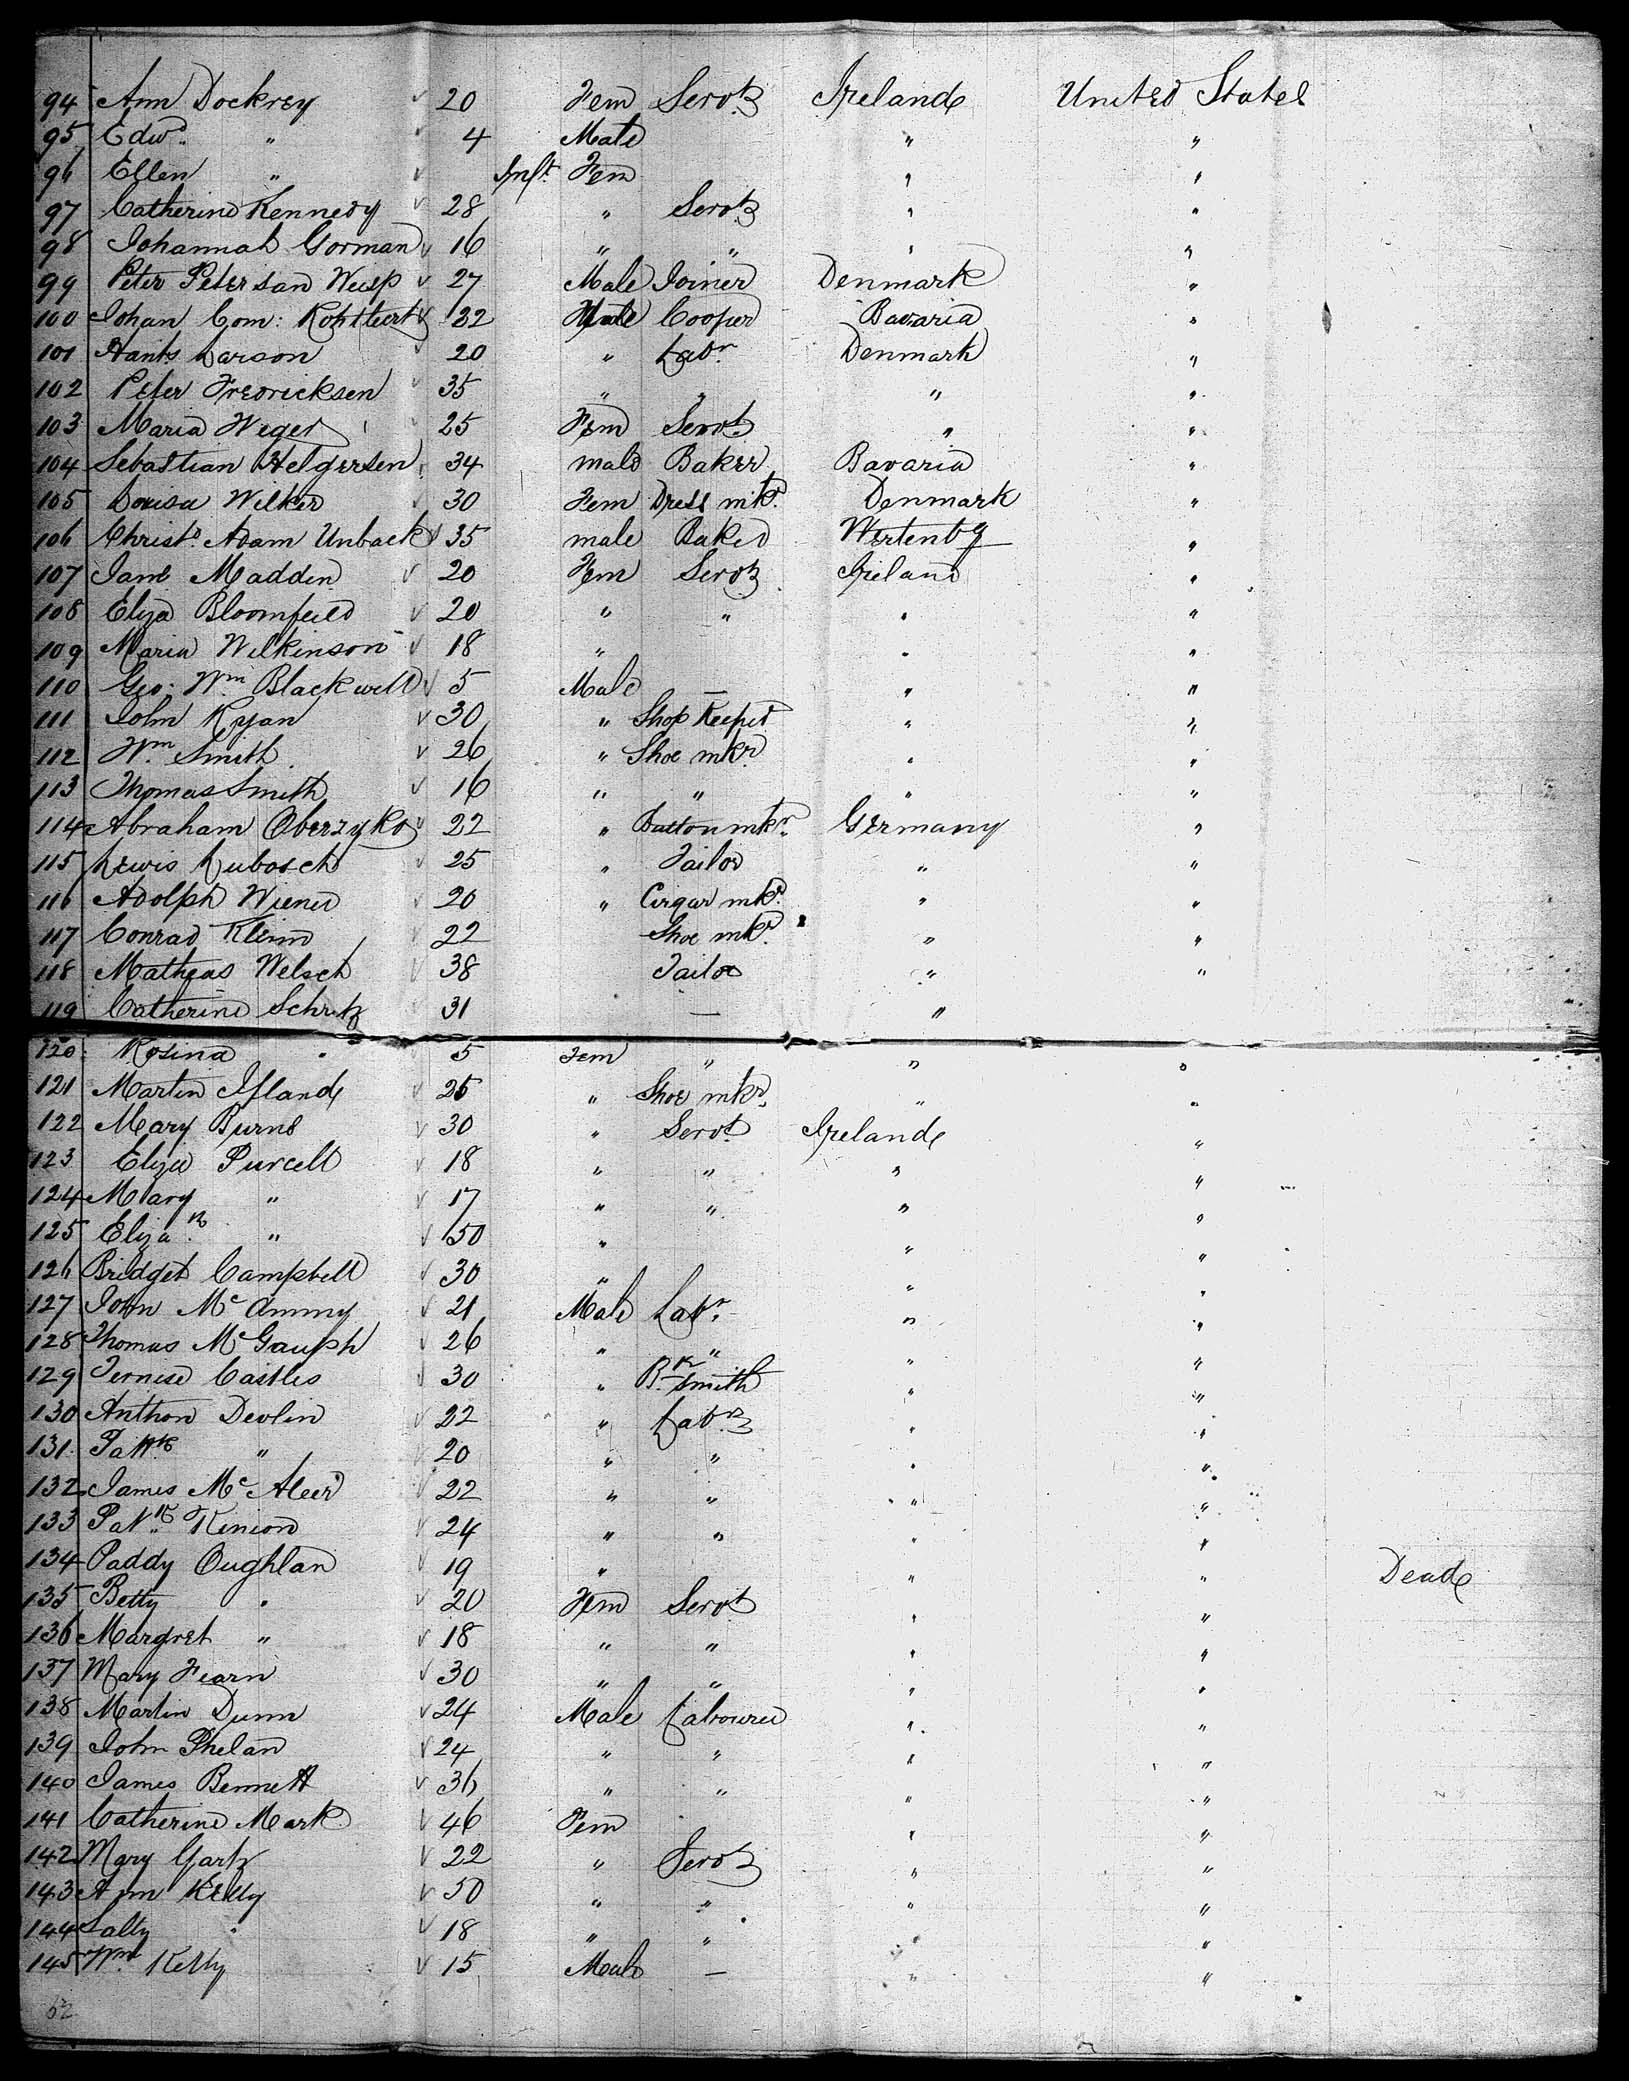 94 Ann Dockrey 20 Fem Servt Ireland United States
95 Edwd. " 4 Male " "
96 Ellen " Inft. Fem " "
97 Catherine Kennedy 28 " Servt " "
98 Johannah Gorman 16 " " " "
99 Peter Petersan 27 Male Joiner Denmark "
100 Johan Com: 32 Male Cooper Bavaria "
101 Hants Larson 20 " Labr. Denmark "
102 Peter Fredricksen 35 " " " "
103 Maria Weger 25 Fem Servt. " "
104 Sebastian Helgersen 34 male Baker Bavaria "
105 Louisa Wilker 30 Fem Dress mkr. Denmark "
106 Christn. Adam Unback 35 male Baker Wertenbg "
107 Jane Madden 20 Fem Servt Ireland "
108 Eliza Bloomfeild 20 " " " "
109 Maria Wilkinson 18 " " "
110 Geo: Wm. Blackwell 5 Male — " "
111 John Ryan 30 " Shop Keeper " "
112 Wm. Smith 26 " Shoe mkr. " "
113 Thomas Smith 16 " " " "
114 Abraham Oberzyko 22 " Button mkr. Germany "
115 Lewis Lubosch 25 " Tailor " "
116 Adolph Wiener 20 " Cirgar mkr. " "
117 Conrad Kleim 22 Shoe mkr. " "
118 Matheas Welsch 38 Tailor " "
119 Catherine Schultz 31 — "
120 Rosina " 5 Fem " " "
121 Martin Ifland 25 " Shoe mkr. " "
122 Mary Burns 30 " Servt. Ireland "
123 Eliza Purcell 18 " " " "
124 Mary " 17 " " " "
125 Elizath. " 50 " " "
126 Bridget Campbell 30 " " "
127 John McAmmy 21 Male Labr. " "
128 Thomas McGaugh 26 " " " "
129 Ternise Castles 30 " Bk. Smith " "
130 Anthon Devlin 22 " Labr. " "
131 Patk. " 20 " " " "
132 James McAleer 22 " " " "
133 Patk. Kinion 24 " " " "
134 Paddy Oughlan 19 " " " Dead
135 Betty " 20 Fem Servt " "
136 Margret " 18 " " " "
137 Mary Fearn 30 " " " "
138 Martin Dunn 24 Male Labourer " "
139 John Phelan 24 " " " "
140 James Bennett 36 " " " "
141 Catherine Mark 46 Fem " "
142 Mary Gartz 22 " Servt " "
143 Ann Kelly 50 " " " "
144 Sally " 18 " " " "
145 Wm. Kelly 15 Male — " "
52